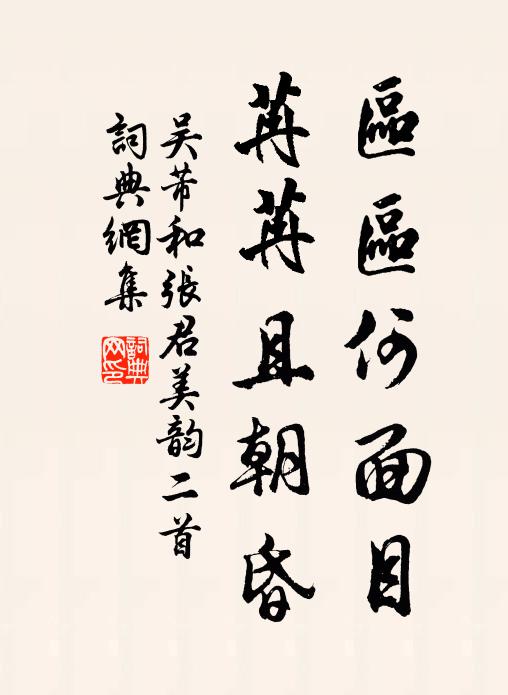 區區何面目
苒苒且朝昏
吴芾和張君美韵二首
詞典網集
詞典網印